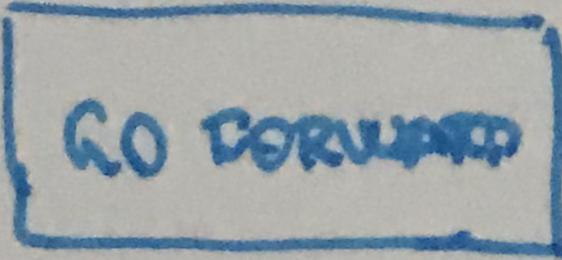 GO FORWARD